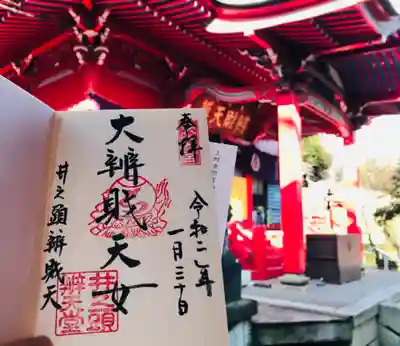 奉拝
令和二年
一月三十日
大辨財天女
井之頭辨財天
井之頭
辨天堂